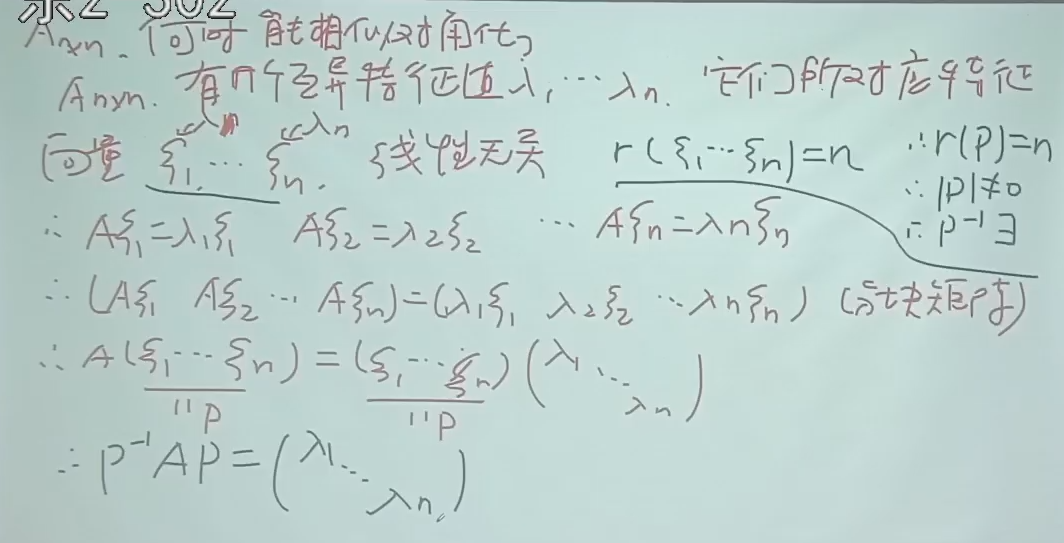 A_{n×n}. 何时能相似对角化?
A_{n×n}. 有n个互异特征值 λ₁ ⋯ λn. 它们所对应特征
λn λn
向量 ξ₁. ⋯ ξn. 线性无关 r(ξ₁⋯ξn)=n ∴r(P)=n
∴|P|≠0
∴P⁻¹∃
∴ Aξ₁=λ₁ξ₁ Aξ₂=λ₂ξ₂ ⋯ Aξn=λnξn
∴ (Aξ₁ Aξ₂ ⋯ Aξn)=(λ₁ξ₁ λ₂ξ₂ ⋯λnξn) (分块矩阵)
∴ A(ξ₁⋯ξn) = (ξ₁⋯ξn)(λ₁ ⋱ λn)
"P "P
∴ P⁻¹AP=(λ₁ ⋱ λn.)